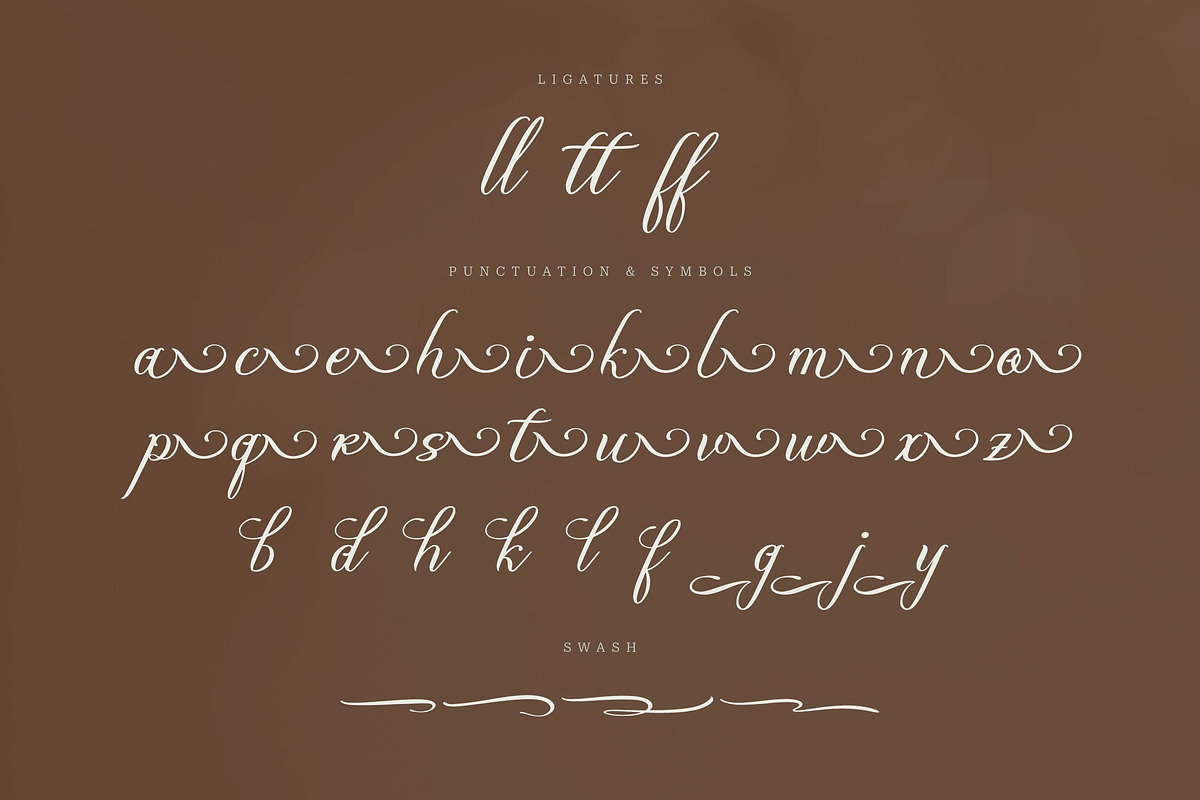 LIGATURES
ll tt ff
PUNCTUATION & SYMBOLS
a c e h i k l m n o
p q r s t u v w x z
b d h k l f g j y
SWASH